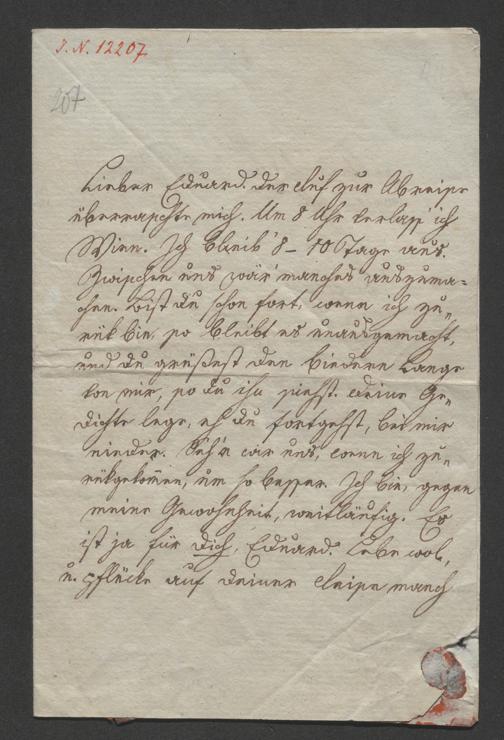 I. N. 12207
207
Lieber Eduard. der Ruf zur Abreise
überraschte mich. Um 8 Uhr verlass' ich
Wien. Ich bleib' 8 – 10 Tage aus.
Zwischen uns wär' manches auszuma-
chen. Bist du schon fort, wenn ich zu„
rük bin, so bleibt es unausgemacht,
und du grüßest den biedern Lange
von mir, so du ihn siehst. deine Ge„
dichte lege, eh du fortgehst, bei mir
nieder. Seh'n wir uns, wenn ich zu„
rükgekom̅en, um so besser. Ich bin, gegen
meine Gewohnheit, weitläufig. Es
ist ja für dich, Eduard. Lebe wol,
u. pflücke auf deiner Reise manch